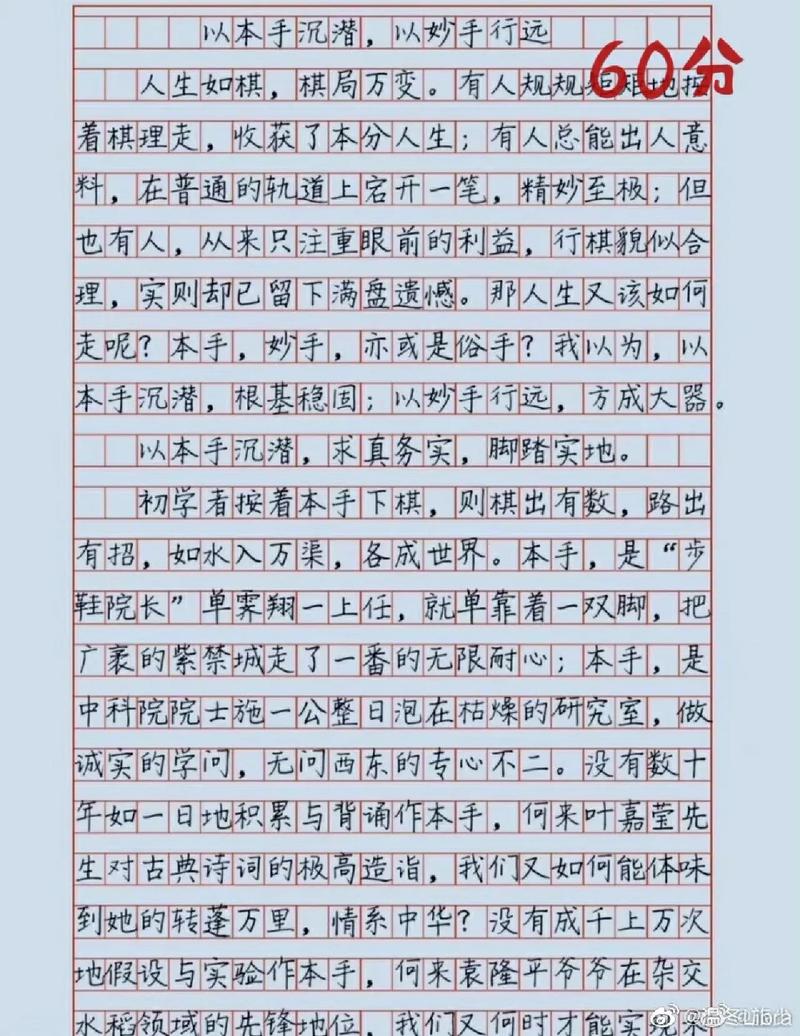 以本手沉潜，以妙手行远
60分
人生如棋，棋局万变。有人规规矩矩地按
着棋理走，收获了本分人生；有人总能出人意
料，在普通的轨道上宕开一笔，精妙至极；但
也有人，从来只注重眼前的利益，行棋貌似合
理，实则却已留下满盘遗憾。那人生又该如何
走呢？本手，妙手，亦或是俗手？我以为，以
本手沉潜，根基稳固；以妙手行远，方成大器。
以本手沉潜，求真务实，脚踏实地。
初学者按着本手下棋，则棋出有数，路出
有招，如水入万渠，各成世界。本手，是“步
鞋院长”单霁翔一上任，就单靠着一双脚，把
广袤的紫禁城走了一番的无限耐心；本手，是
中科院院士施一公整日泡在枯燥的研究室，做
诚实的学问，无问西东的专心不二。没有数十
年如一日地积累与背诵作本手，何来叶嘉莹先
生对古典诗词的极高造诣，我们又如何能体味
到她的转蓬万里，情系中华？没有成千上万次
地假设与实验作本手，何来袁隆平爷爷在杂交
水稻领域的先锋地位，我们又何时才能实